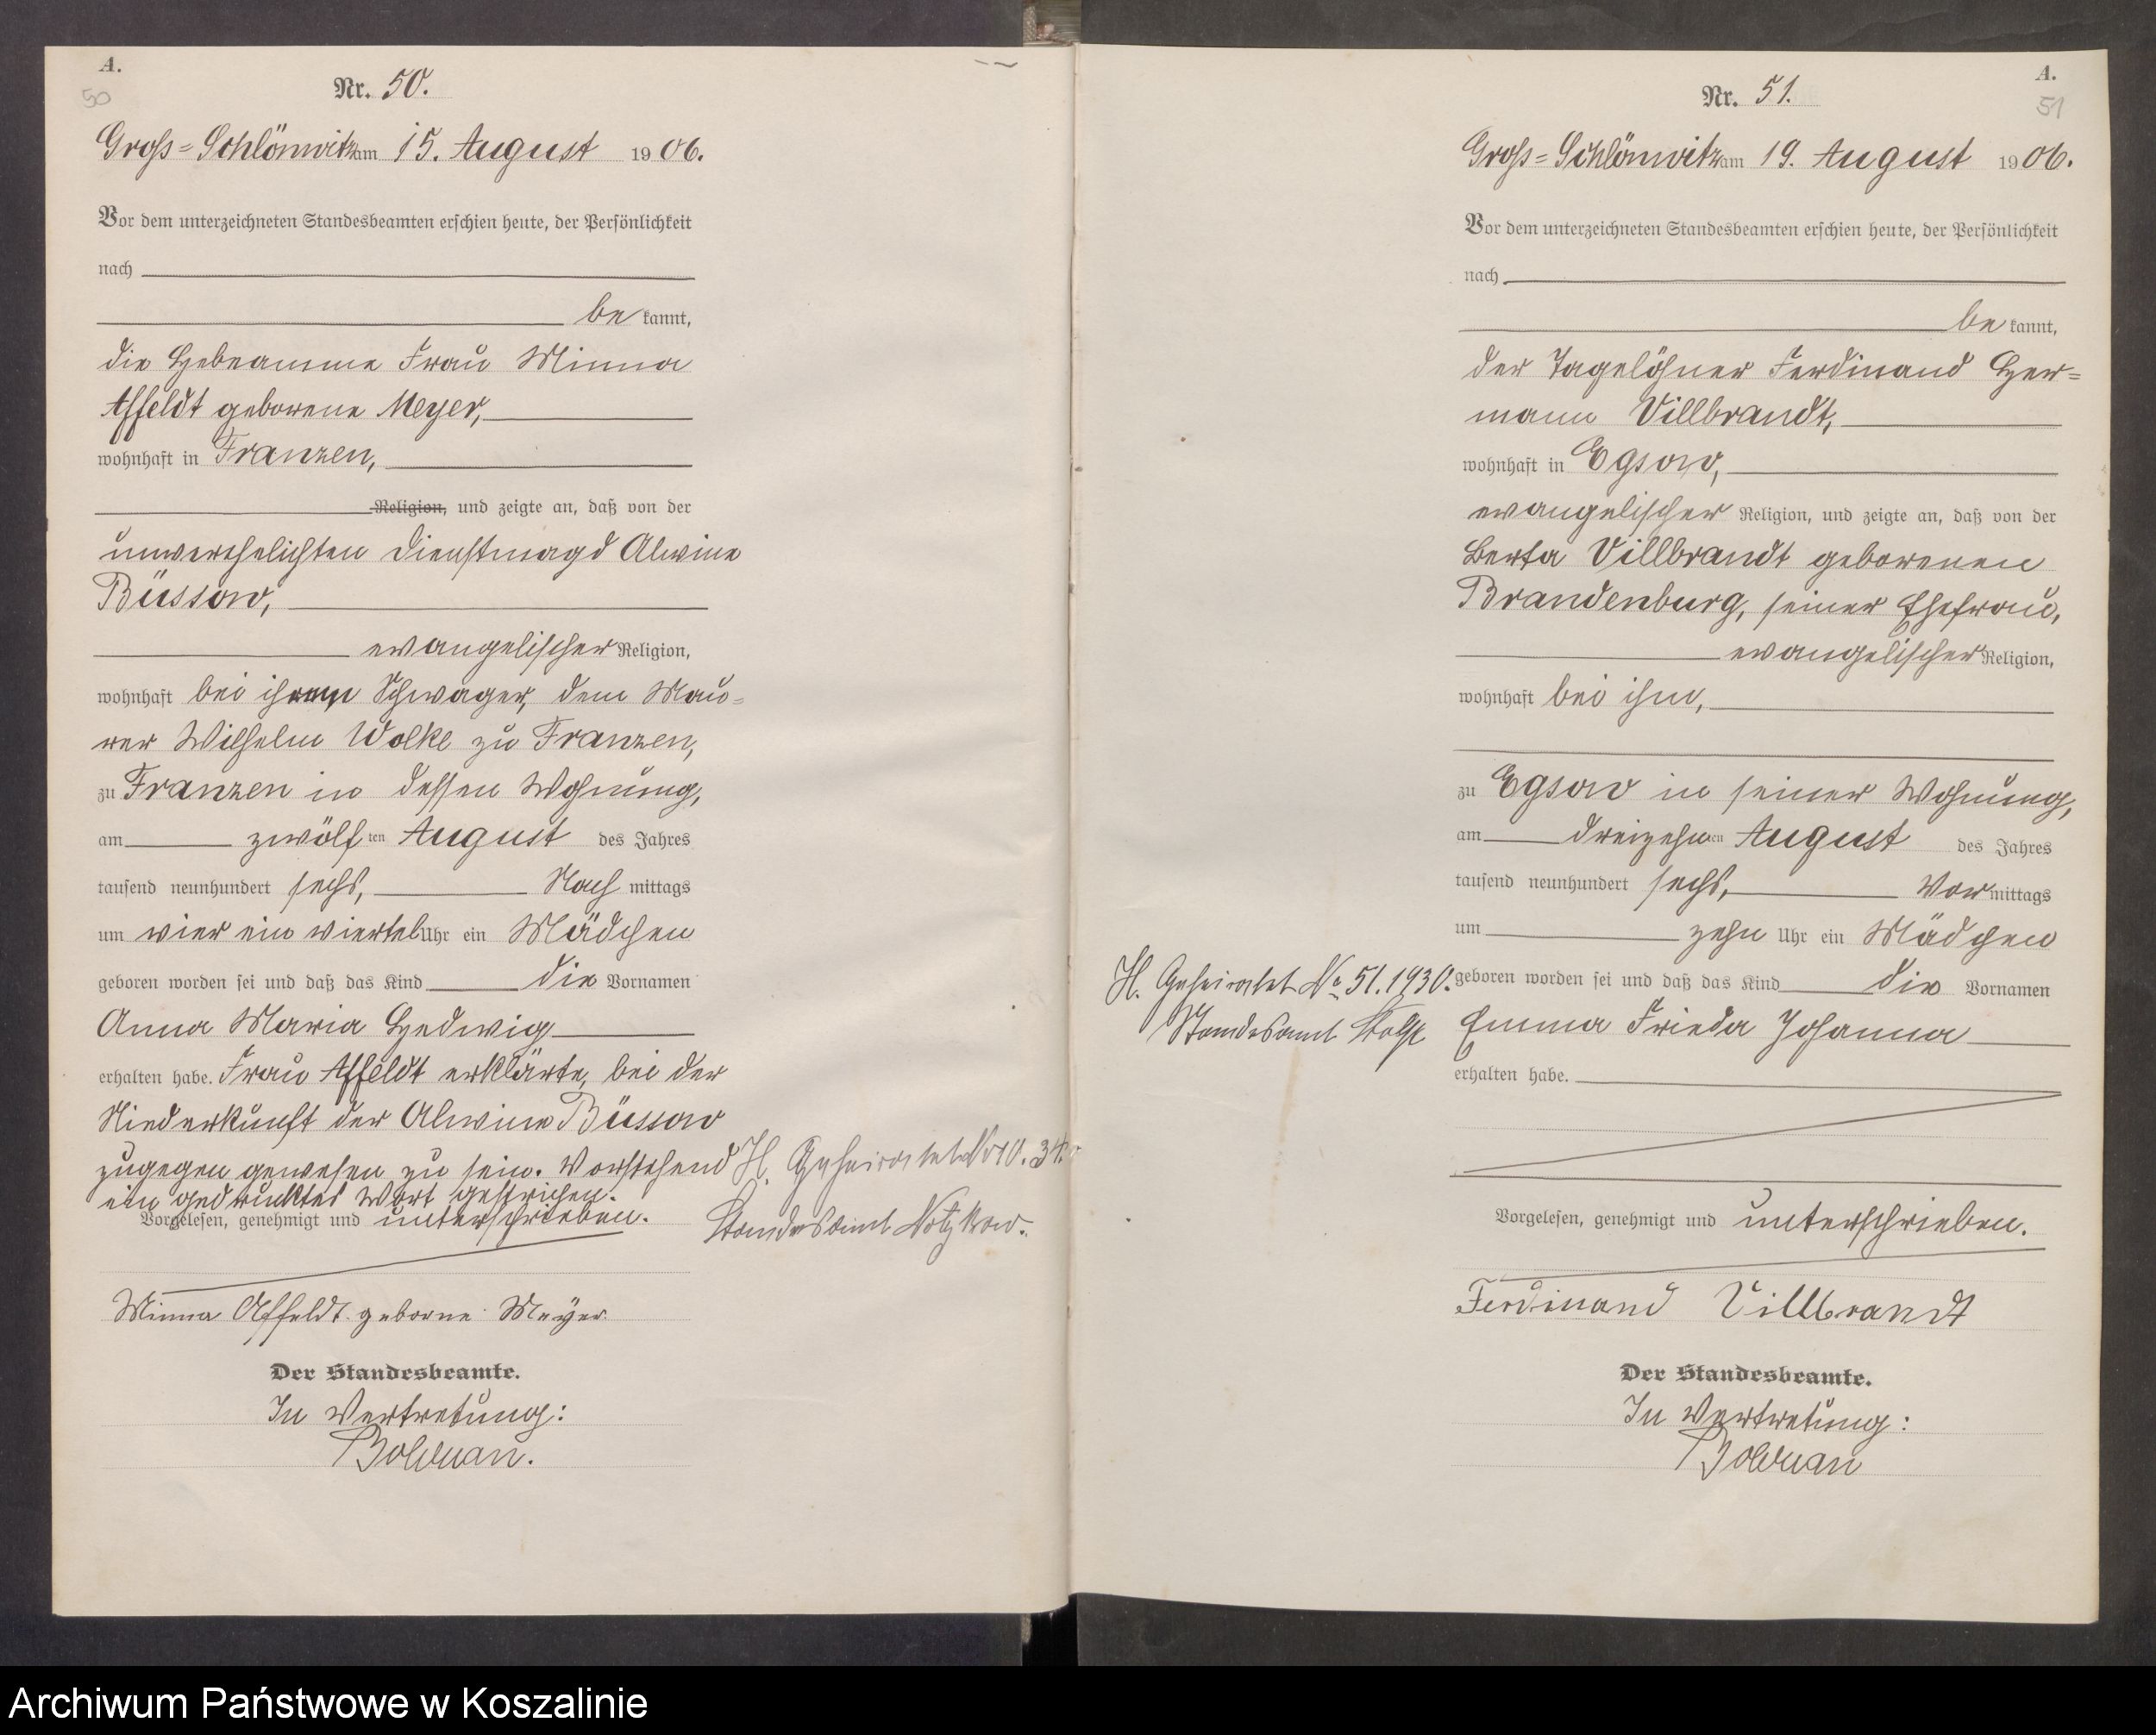 A.
50
Nr. 50.
Groß-Schlönwitz am 15. August 1906.
Vor dem unterzeichneten Standesbeamten erschien heute, der Persönlichkeit
nach
be kannt,
die Hebeamme Frau Minna
Affeldt geborene Meyer,
wohnhaft in Franzen,
Religion, und zeigte an, daß von der
unverehelichten Dienstmagd Alwine
Büssow,
evangelischer Religion,
wohnhaft bei ihrem Schwager, dem Mau-
rer Wilhelm Wolke zu Franzen,
zu Franzen in dessen Wohnung,
am zwölf ten August des Jahres
tausend neunhundert sechs, Nach mittags
um vier ein viertel Uhr ein Mädchen
geboren worden sei und daß das Kind die Vornamen
Anna Maria Hedwig
erhalten habe. Frau Affeldt erklärte, bei der
Niederkunft der Alwine Büssow
zugegen gewesen zu sein. Vorstehend
ein gedrucktes Wort gestrichen.
Vorgelesen, genehmigt und unterschrieben.
H. Geheiratet No 10. 34.
Standesamt Notzkow.
Minna Affeldt geborne Meyer.
Der Standesbeamte.
In Vertretung:
Bolduan.
A.
51
Nr. 51.
Groß-Schlönwitz am 19. August 1906.
Vor dem unterzeichneten Standesbeamten erschien heute, der Persönlichkeit
nach
be kannt,
der Tagelöhner Ferdinand Her-
mann Villbrandt,
wohnhaft in Egsow,
evangelischer Religion, und zeigte an, daß von der
Berta Villbrandt geborenen
Brandenburg, seiner Ehefrau,
evangelischer Religion,
wohnhaft bei ihm,
zu Egsow in seiner Wohnung,
am dreizehn ten August des Jahres
tausend neunhundert sechs, Vor mittags
um zehn Uhr ein Mädchen
geboren worden sei und daß das Kind die Vornamen
Emma Frieda Johanna
erhalten habe.
H. Geheiratet No 51. 1930.
Standesamt Stolp
Vorgelesen, genehmigt und unterschrieben.
Ferdinand Villbrandt
Der Standesbeamte.
In Vertretung:
Bolduan
Archiwum Państwowe w Koszalinie